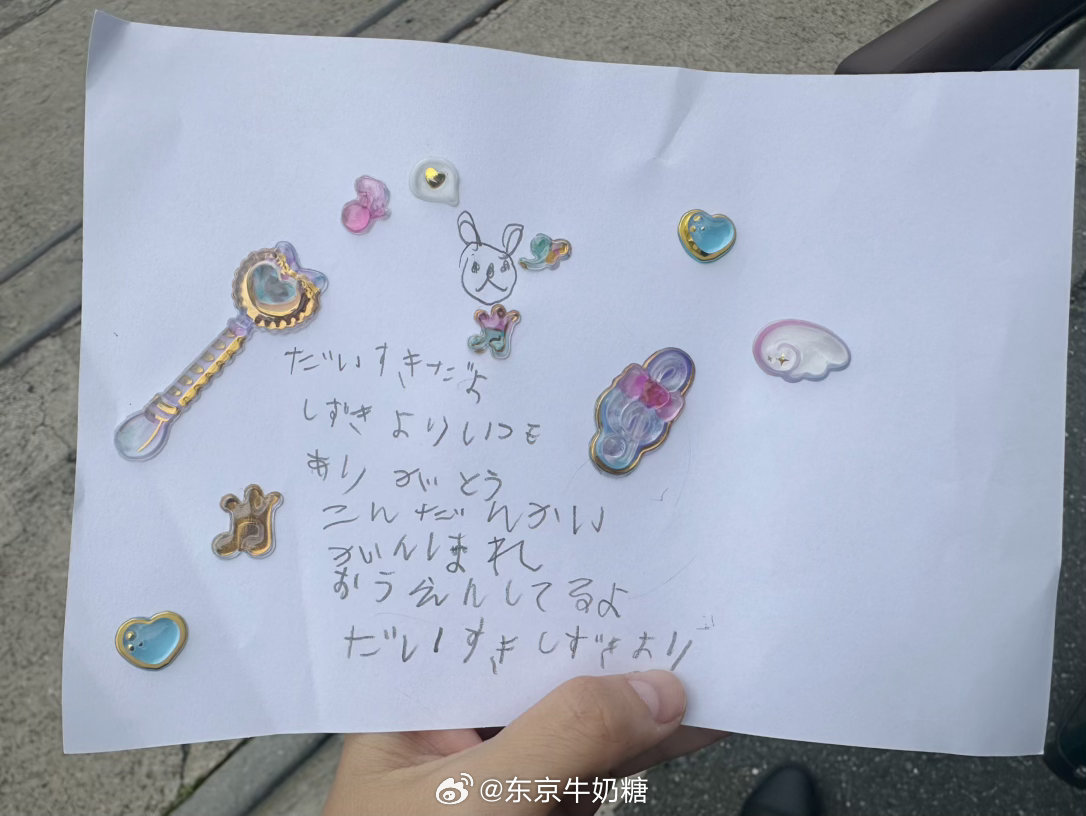 だいすきだよ
しずきよりいつも
ありがとう
こんだんかい
がんしまれ
おうえんしてるよ
だいすきしずきより
@东京牛奶糖